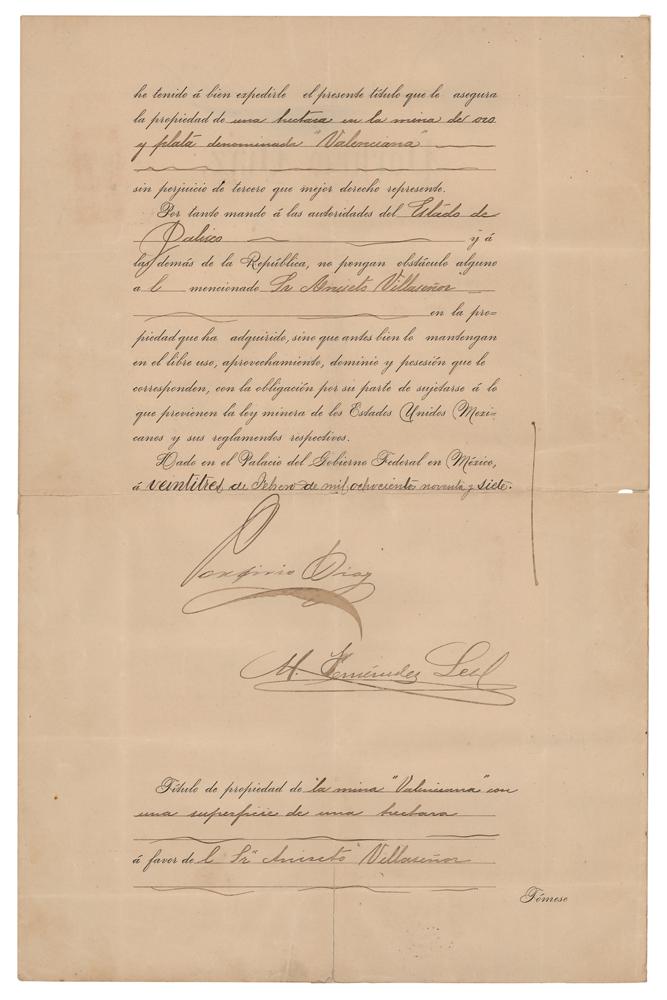 he tenido á bien expedirle el presente título que le asegura
la propiedad de una hectara en la mina de oro
y plata denominada "Valenciana"
sin perjuicio de tercero que mejor derecho represente.
Por tanto mando á las autoridades del Estado de
Jalisco y á
las demás de la República, no pongan obstáculo alguno
a l mencionado Sr Aniseto Villaseñor
en la pro=
piedad que ha adquirido, sino que antes bien lo mantengan
en el libre uso, aprovechamiento, dominio y posesión que le
corresponden, con la obligación por su parte de sujetarse á lo
que previenen la ley minera de los Estados Unidos Mexi-
canos y sus reglamentos respectivos.
Dado en el Palacio del Gobierno Federal en México,
á veintitres de Febrero de mil ochociento noventa y siete.
Porfirio Diaz
M. Fernández Leal
Título de propiedad de la mina "Valenciana" con
una superficie de una hectara
á favor de l Sr Aniseto Villaseñor
Tómese